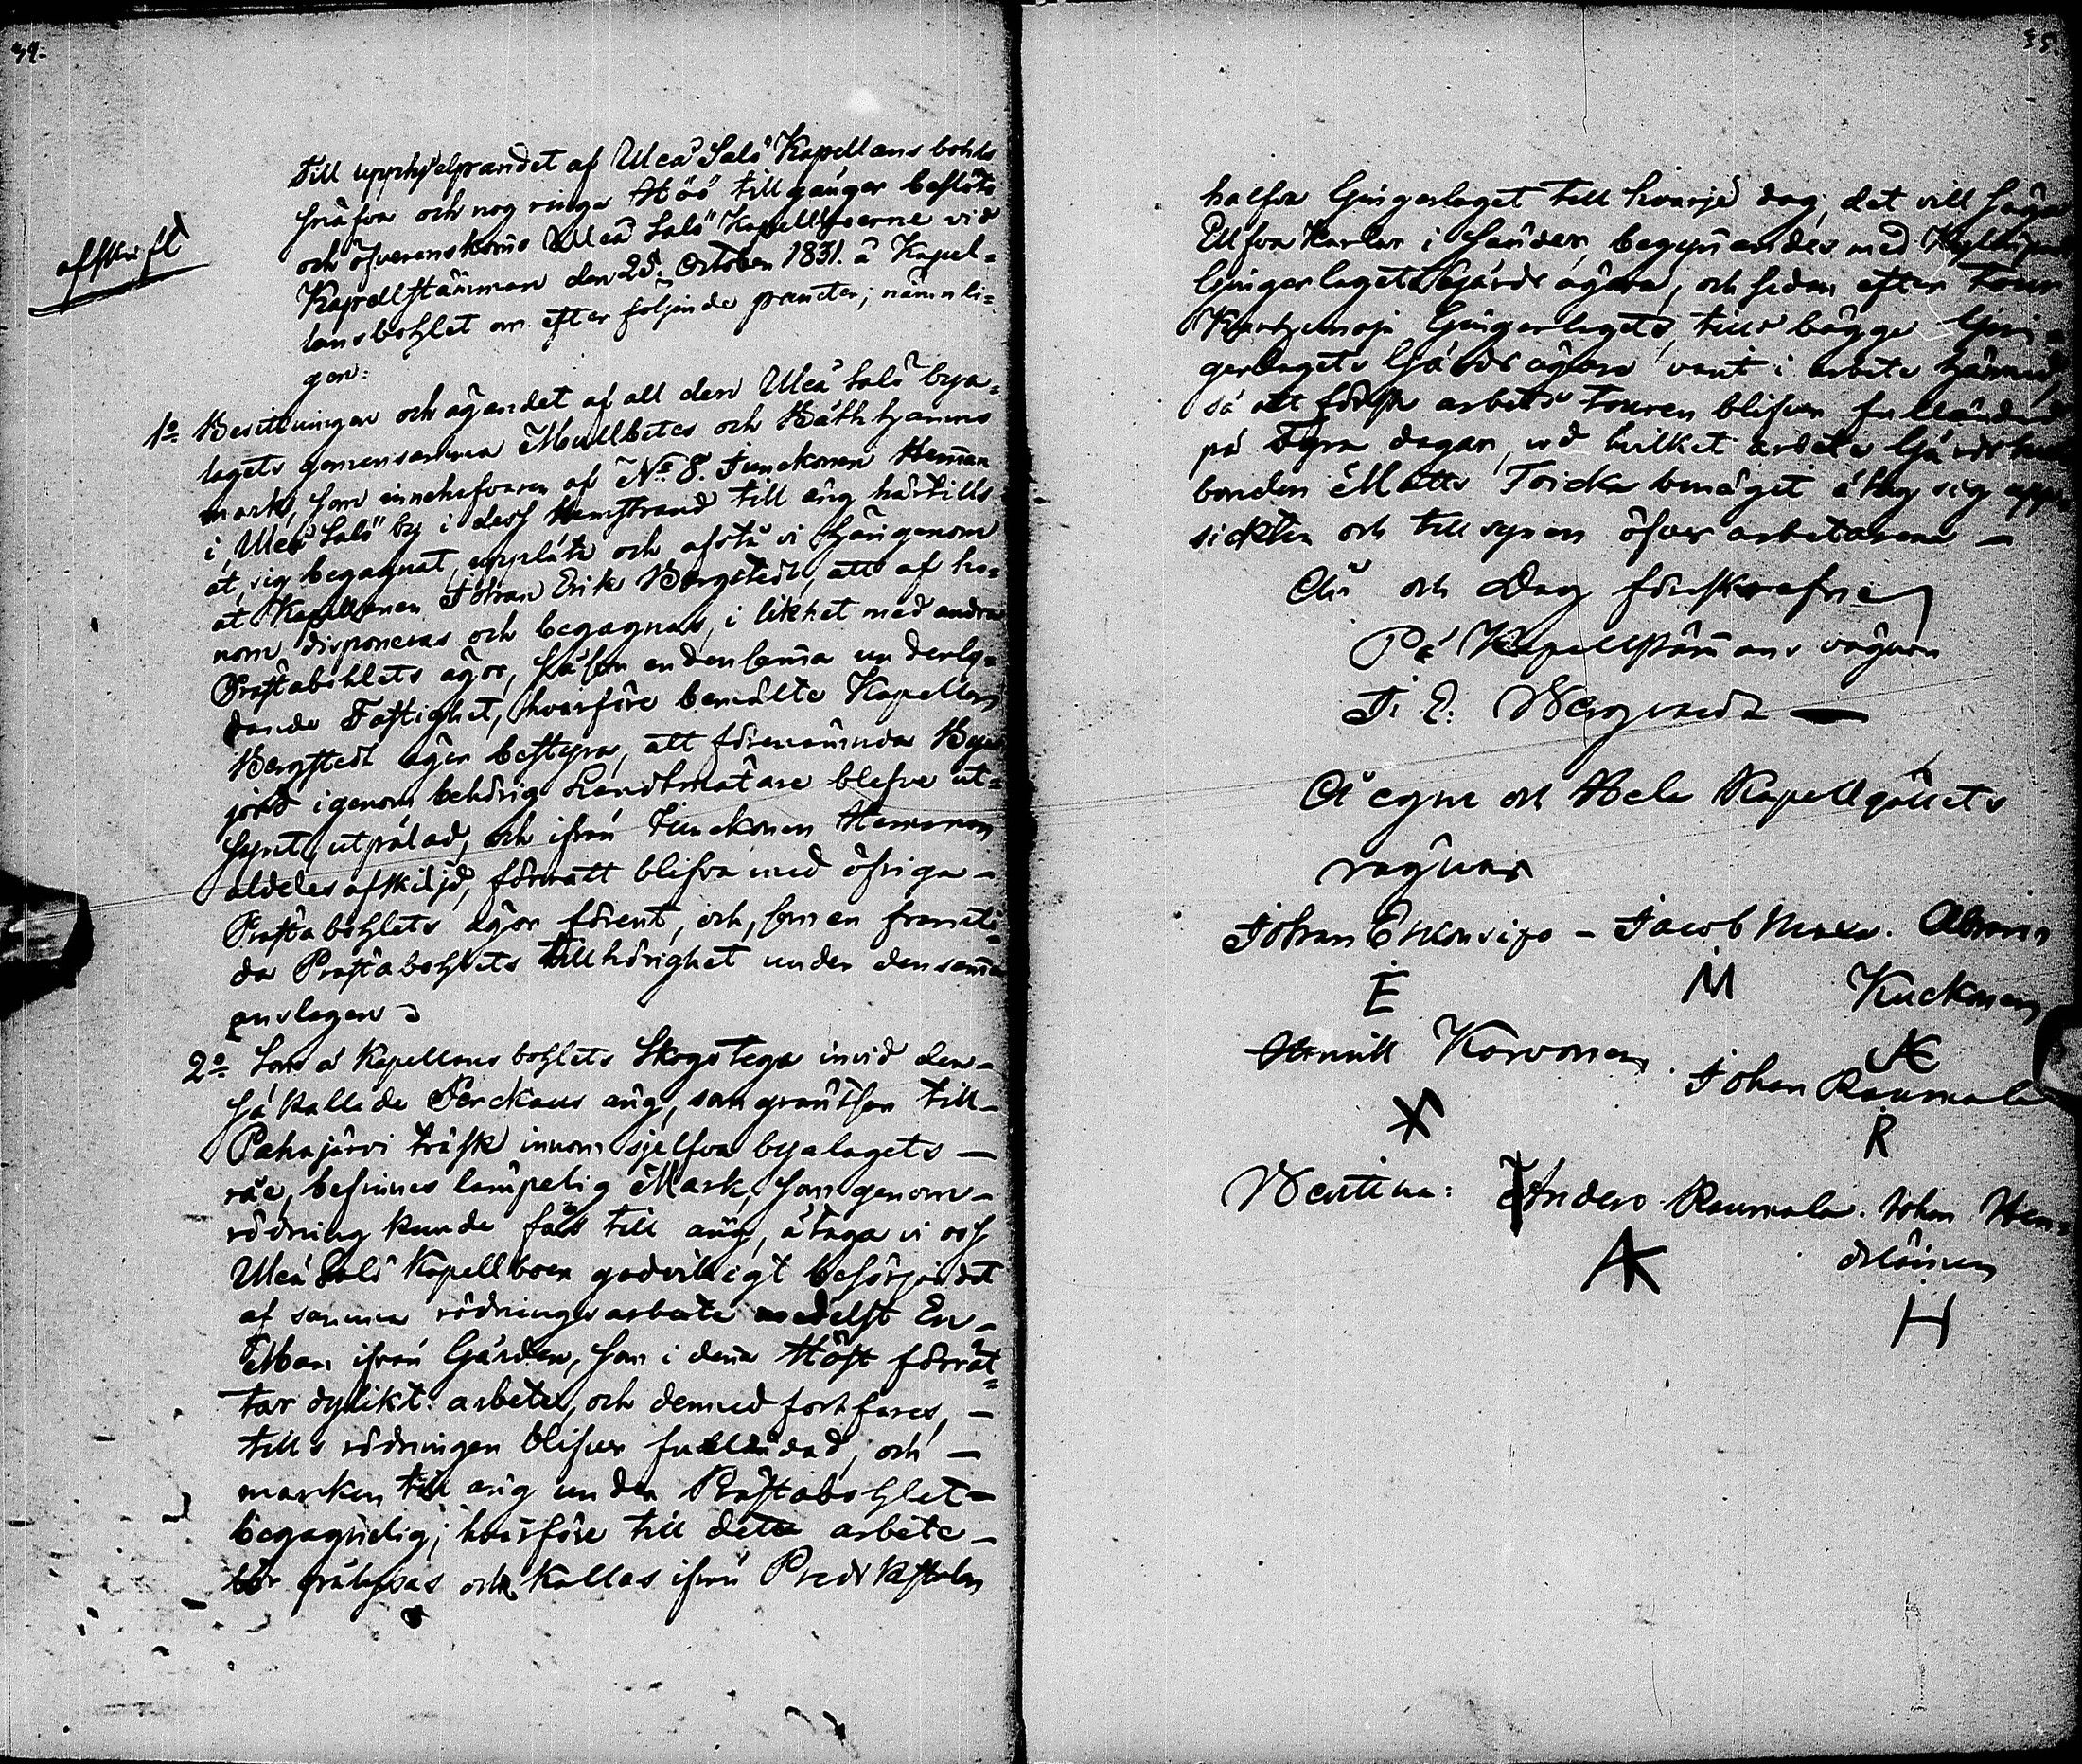 34.
afskrift
Till upphjelpandet af Uleå Salö Kapellans bohls
knafva och nog ringa Höö tillgångar beslöts
och öfverenskoms Uleå Salö Kapellboerne vid
Kapellstämman den 25 October 1831. å Kapel=
lansbohlet om efter följande puncter; nämnli=
gen:
1o Besittningen och ägandet af all den Uleå Salö bya=
lagets gemensamma Mulbetes och
mark, som innehafvaren af No 8. Junckonen Heman
i Uleå Salö by i dess Hemstrand till äng härtills
åt sig begagnat, upplåta och afstå vi härigenom
åt Kapellanen Johan Erik Bergstedt, att af ho=
nom disponeras och begagnas, i likhet med andra
Prästabohlets ägor, såsom en densamma underly=
dande Fastighet, hvarföre bemälte Kapellan
Bergstedt äger bestyra, att förenämnda Bya
jord igenom behörig Landtmätare blefve ut=
synt, utpålad, och ifrån Junckonen Hemman
aldeles afskiljd, för att blifva med öfriga -
Prästabohlets ägor förent, och, som en framti=
da Prästabohlets tillhörighet under densamma
anslagen.
2o Som å Kapellans bohlets Skogstega invid den -
så kallade Perckaus äng, som gräntsar till -
Pahajärvi träsk innom sjelfva byalagets -
råe, befinnes lämpelig Mark, som genom -
rödning kunde fås till äng, åtaga vi oss
Uleå Salö Kapellboer godvilligt besörjandet
af samma rödnings arbete medelst En -
Man ifrån Gården, som i denna Höst förrät=
tar dylikt arbete, och dermed fortfares, -
tills rödningen blifver fulländad, och -
marken till äng under Prästabohlet -
begagnelig; hvarföre till detta arbete -
bör pålysas och kallas ifrån Predikstolen
35.
halfva Gingerlaget till hvarje dag, det vill säga
Elfva Karlar i sänder, begynandes med
Gingerlagets Gårds ägare, och sedan efter Tour
Gingerlagets, tills bägge Gin=
gerlagets Gårds ägare varit i arbete härmed,
så att första arbets Touren blifver fulländad
på Fyra dagar, vid hvilket arbete
bonden Matts Toicka benäget åtog sig upp=
sickten och tillsynen öfver arbetarena -
År och Dag förskrefne
På Kapellstämans vägnar
J. E. Bergstedt -
Å egne och Hela Kapellgällets
vägnar
Johan Erkonsipo - Jacob Maxa. Abram
E M Kuckonen
AK
Henrik Karvonen. Johan Raumala
X R
Bevittna: Anders Raumala. Johan Hen=
AK driäinen
H